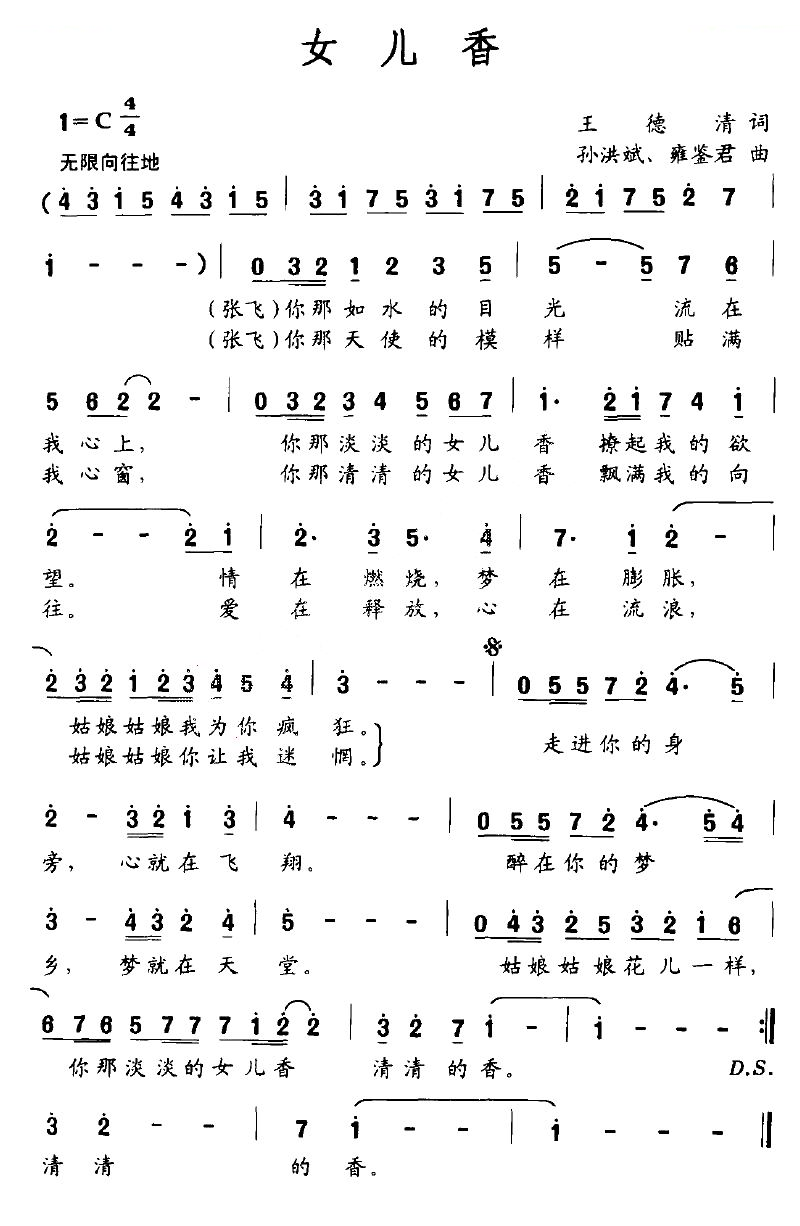 女儿香
1=C 4/4
王德清 词
无限向往地
孙洪斌、雍鉴君 曲
(4 3 1 5 4 3 1 5 | 3 1 7 5 3 1 7 5 | 2 1 7 5 2 7
1 - - -) | 0 3 2 1 2 3 5 | 5 - 5 7 6 |
(张飞)你那如水的目光 流在
(张飞)你那天使的模样 贴满
5 6 2 2 - | 0 3 2 3 4 5 6 7 | 1· 2 1 7 4 1 |
我心上, 你那淡淡的女儿香 撩起我的欲
我心窗, 你那清清的女儿香 飘满我的向
2 - - 2 1 | 2· 3 5· 4 | 7· 1 2 - |
望。 情在燃烧,梦在膨胀,
往。 爱在释放,心在流浪,
2 3 2 1 2 3 4 5 4 | 3 - - - | 0 5 5 7 2 4· 5 |
姑娘姑娘我为你疯狂。
姑娘姑娘你让我迷惘。
走进你的身
2 - 3 2 1 3 | 4 - - - | 0 5 5 7 2 4· 5 4 |
旁, 心就在飞翔。 醉在你的梦
3 - 4 3 2 4 | 5 - - - | 0 4 3 2 5 3 2 1 6 |
乡, 梦就在天堂。 姑娘姑娘花儿一样,
6 7 6 5 7 7 7 1 2 2 | 3 2 7 1 - | 1 - - - :‖
你那淡淡的女儿香 清清的香。 D.S.
3 2 - - | 7 1 - - | 1 - - - ‖
清清 的香。